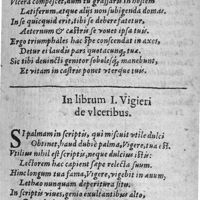 Vlcera compescet, dum tu grassaris in hostem
Latiferum, atque alijs non subigenda domas.
In se quicquid erit, tibi se debere fatetur,
Aeternum & castris se vouet ipsa tuis.
Ergo triumphales hac spe consendat in axes,
Detur ei laudis pars quotacunq, tuæ.
Sic tibi deuincti genitor sobolesq́, manebunt,
Et vitam in castris ponet vterque tuis.
In librum I. Vigieri
de vlceribus.
SI palmam in scriptis, qui miscuit vtile dulci
Obtinet, haud dubiè palma, Vigere, tua est.
Vtilius nihil est scriptis, neque dulcius istis:
Lectorem hac capient sapa relecta suum.
Hinc longum tua fama, Vigere, vigebit in æuum,
Lethæo nunquam deperitura situ.
In scriptis viues, genio exultantibus alto,